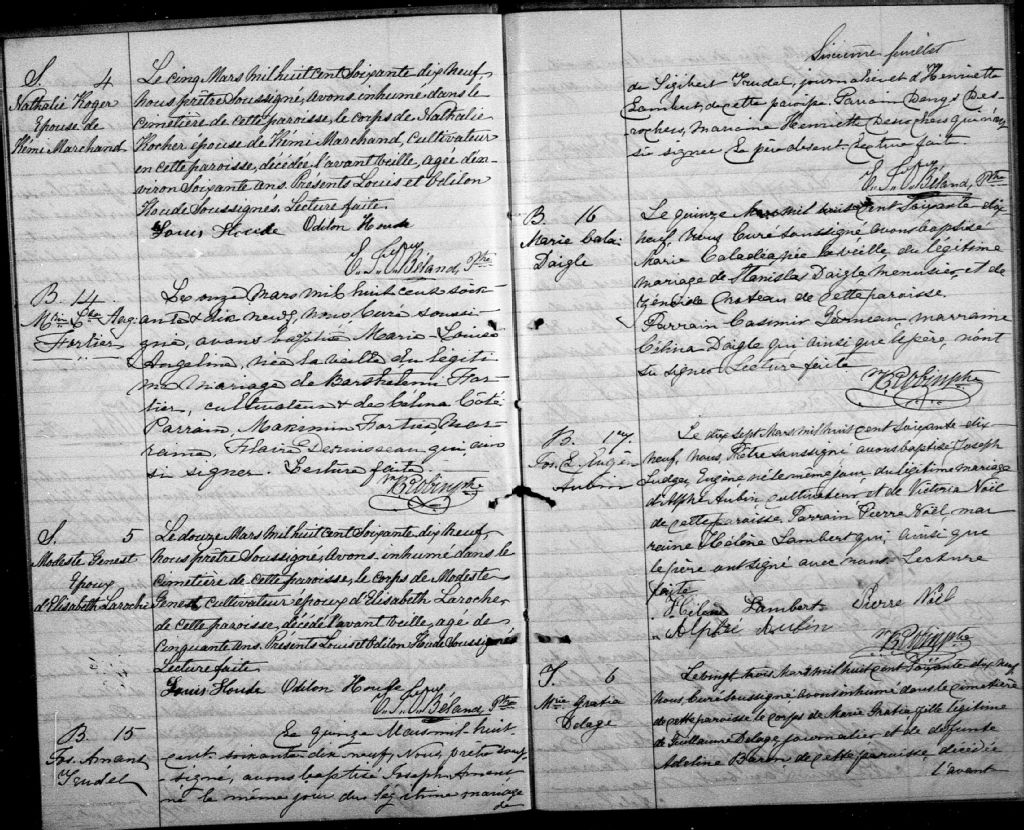 S. 4
Nathalie Roger
Epouse de
Rémi Marchand
Le cinq Mars mil huit cent Soixante dix neuf,
Nous prêtre Soussigné, avons inhumé dans le
cimetière de cette paroisse, le corps de Nathalie
Rocher, épouse de Rémi Marchand, Cultivateur
en cette paroisse, décédée l'avant veille, agée d'en-
viron Soixante ans. Présents Louis et Odilon
Houde Soussignés. Lecture faite.
Louis Houde Odilon Houde
Béland, Ptre
B. 14
Mie Ang:
Fortier
Le onze Mars mil huit cent soix-
ante & dix neuf, nous Curé soussi-
gné, avons baptisé Marie-Louise
Angelina, née la veille du légiti-
me mariage de Barthelemi For-
tier, cultivateur & de Celina Côté
Parrain, Maximin Fortier, mar-
raine, qui ainsi
si signer. Lecture faite
S. 5
Modeste Genest
Epoux
d'Elisabeth Laroche
Le douze Mars mil huit cent Soixante dix neuf,
Nous prêtre Soussigné, Avons inhumé dans le
Cimetière de cette paroisse, le corps de Modeste
Genest cultivateur époux d'Elisabeth Larocher
de cette paroisse, décédé l'avant veille, agé de
Cinquante ans. Présents Louis et Odilon Houde Soussignés
Lecture faite
Louis Houde Odilon Houde
Béland, Ptre
B. 15
Jos. Amant
Trudel
Le quinze Mars mil huit
cent soixante dix neuf, Nous, prêtre sous-
signé, avons baptisé Joseph Amant
né le même jour du légitime mariage
de
Sixième feuillet
de Sigibert Trudel, journalier et d'Henriette
Lambert, de cette paroisse. Parrain Denys Des-
rochers, marraine Henriette Desrochers qui n'ont
su signer. Le père absent. Lecture faite.
Béland, Ptre
B. 16
Marie Cala:
Daigle
Le quinze Mars mil huit cent Soixante dix
neuf, Nous Curé soussigné avons baptisé
Marie née la veille, du légitime
mariage de Stanislas Daigle menuisier, et de
de cette paroisse.
Parrain Casimir Germeau, marraine
Célina Daigle qui ainsi que le père, n'ont
su signer Lecture faite
B. 17
Jos. L. Eugèn
Aubin
Le dix sept Mars mil huit cent Soixante dix-
neuf, Nous, Prêtre soussigné avons baptisé Joseph
Ludger Eugène né le même jour du légitime mariage
d'Alphé Aubin cultivateur et de Victoria Noël
de cette paroisse. Parrain Pierre Noël, mar
raine Hélène Lambert qui, ainsi que
le père ont signé avec nous. Lecture
faite
Hélène Lambert Pierre Noël
Alphé Aubin
S. 6
Mie Gratia
Delage
Le vingt trois Mars mil huit cent Soixante dix neuf
Nous, Curé soussigné, avons inhumé dans le cimetière
de cette paroisse le corps de Marie Gratia, fille légitime
de Guillaume Delage journalier et de défunte
Adeline Baron de cette paroisse, décédée
l'avant